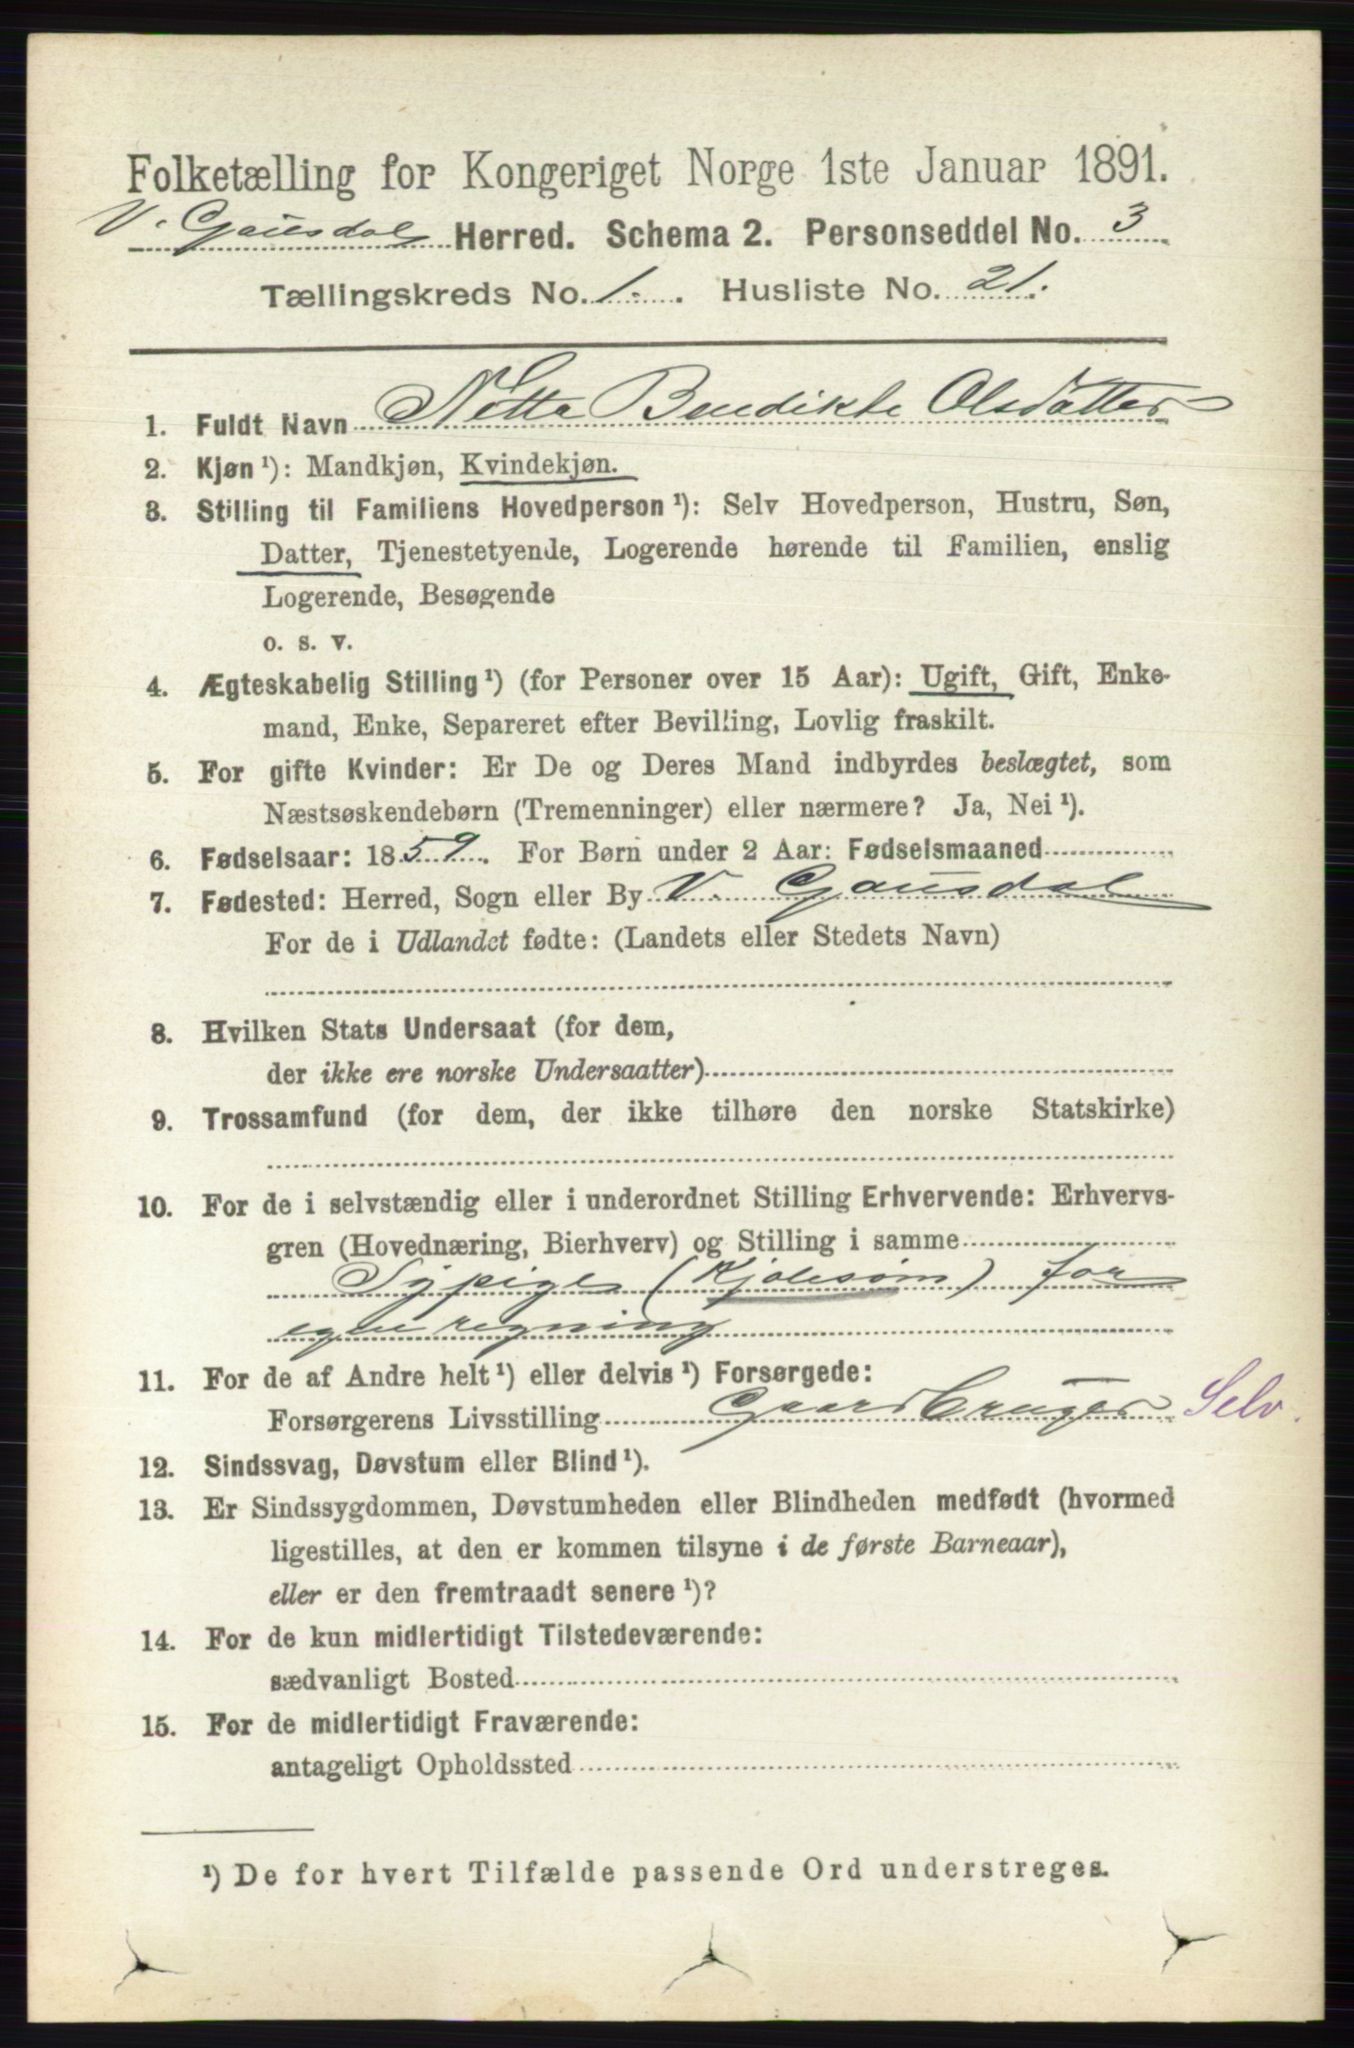 Folketælling for Kongeriget Norge 1ste Januar 1891.
V. Gausdal Herred. Schema 2. Personseddel No. 3
Tællingskreds No. 1. Husliste No. 21.
1. Fuldt Navn Netta Bendikte Olsdatter
2. Kjøn ¹): Mandkjøn, Kvindekjøn.
3. Stilling til Familiens Hovedperson ¹): Selv Hovedperson, Hustru, Søn,
Datter, Tjenestetyende, Logerende hørende til Familien, enslig
Logerende, Besøgende
o. s. v.
4. Ægteskabelig Stilling ¹) (for Personer over 15 Aar): Ugift, Gift, Enke-
mand, Enke, Separeret efter Bevilling, Lovlig fraskilt.
5. For gifte Kvinder: Er De og Deres Mand indbyrdes beslægtet, som
Næstsøskendebørn (Tremenninger) eller nærmere? Ja, Nei ¹).
6. Fødselsaar: 1859. For Børn under 2 Aar: Fødselsmaaned
7. Fødested: Herred, Sogn eller By V. Gausdal
For de i Udlandet fødte: (Landets eller Stedets Navn)
8. Hvilken Stats Undersaat (for dem,
der ikke ere norske Undersaatter)
9. Trossamfund (for dem, der ikke tilhøre den norske Statskirke)
10. For de i selvstændig eller i underordnet Stilling Erhvervende: Erhvervs-
gren (Hovednæring, Bierhverv) og Stilling i samme
Sypige (Kjolesøm) for
egne regning
11. For de af Andre helt ¹) eller delvis ¹) Forsørgede:
Forsørgerens Livsstilling Gaardbruger Selv.
12. Sindssvag, Døvstum eller Blind ¹).
13. Er Sindssygdommen, Døvstumheden eller Blindheden medfødt (hvormed
ligestilles, at den er kommen tilsyne i de første Barneaar),
eller er den fremtraadt senere ¹)?
14. For de kun midlertidigt Tilstedeværende:
sædvanligt Bosted
15. For de midlertidigt Fraværende:
antageligt Opholdssted
¹) De for hvert Tilfælde passende Ord understreges.